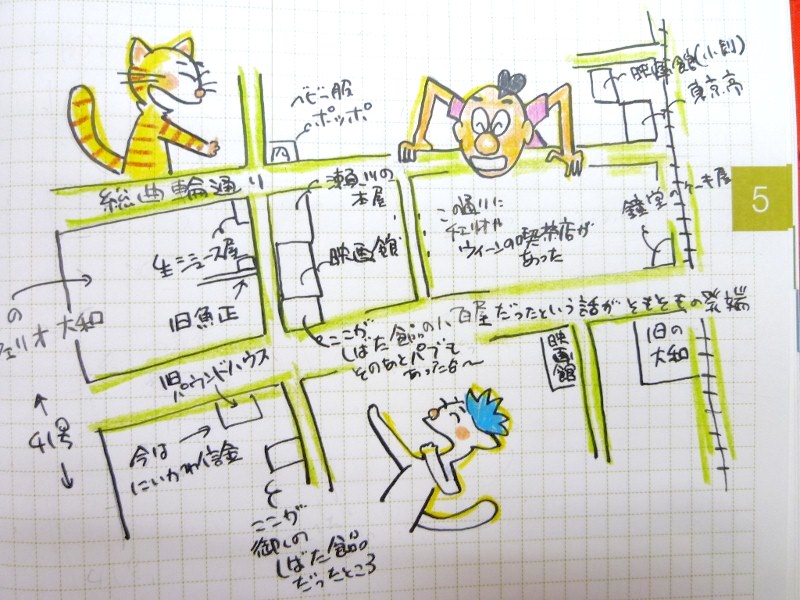 ベビー服
ポッポ
映画館(小劇)
東京亭
総曲輪通り
瀬川の
本屋
この通りに
チェリオや
ウィーンの喫茶店が
あった
鐘堂のケーキ屋
5
生ジュース屋
映画館
旧魚正
の
大和
旧パウンドハウス
ここが
しばた食品の八百屋だったという話がそもそもの発端
そのあとパブも
あったな〜
映画館
旧の
大和
41号
今は
にいかわ信金
ここが
しばた食品
だったところ